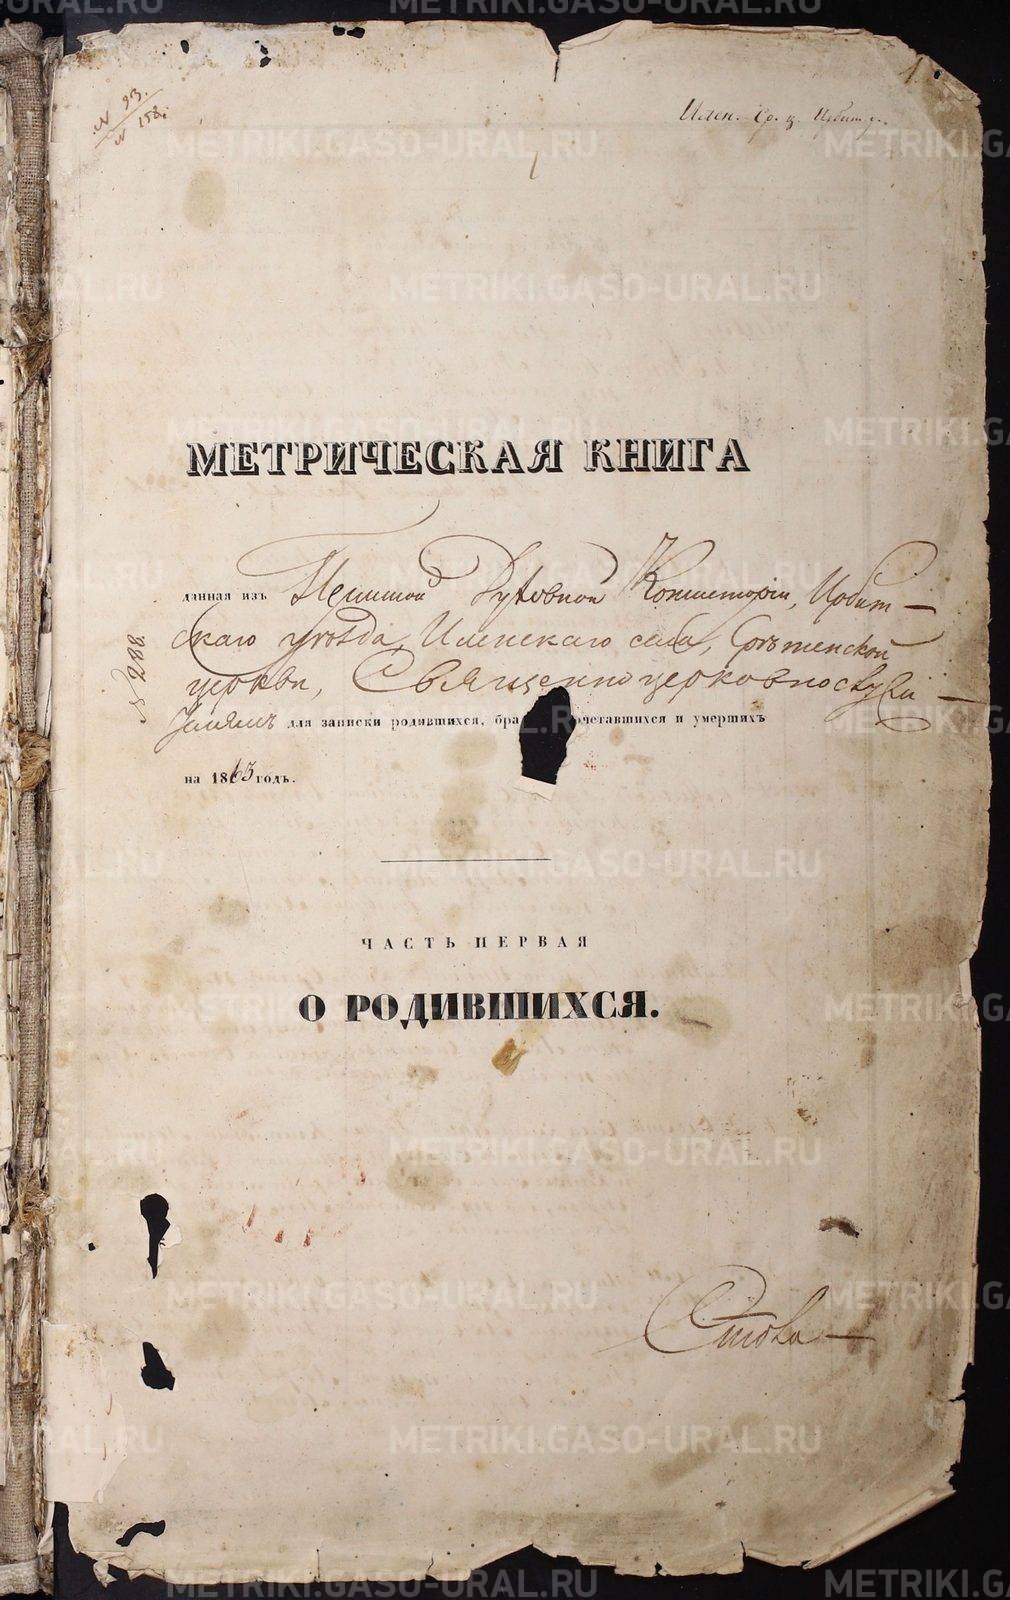 № 93.
№ 158.
1.
Илен. Ср. ц. Ирбит у.
МЕТРИЧЕСКАЯ КНИГА
данная изъ Пермской Духовной Консисторіи, Ирбит-
скаго уѣзда, Иленскаго села, Срѣтенской
церкви, Священноцерковнослужи-
телямъ для записки родившихся, бра очетавшихся и умершихъ
№ 288.
на 1863 годъ.
ЧАСТЬ ПЕРВАЯ
О РОДИВШИХСЯ.
METRIKI.GASO-URAL.RU